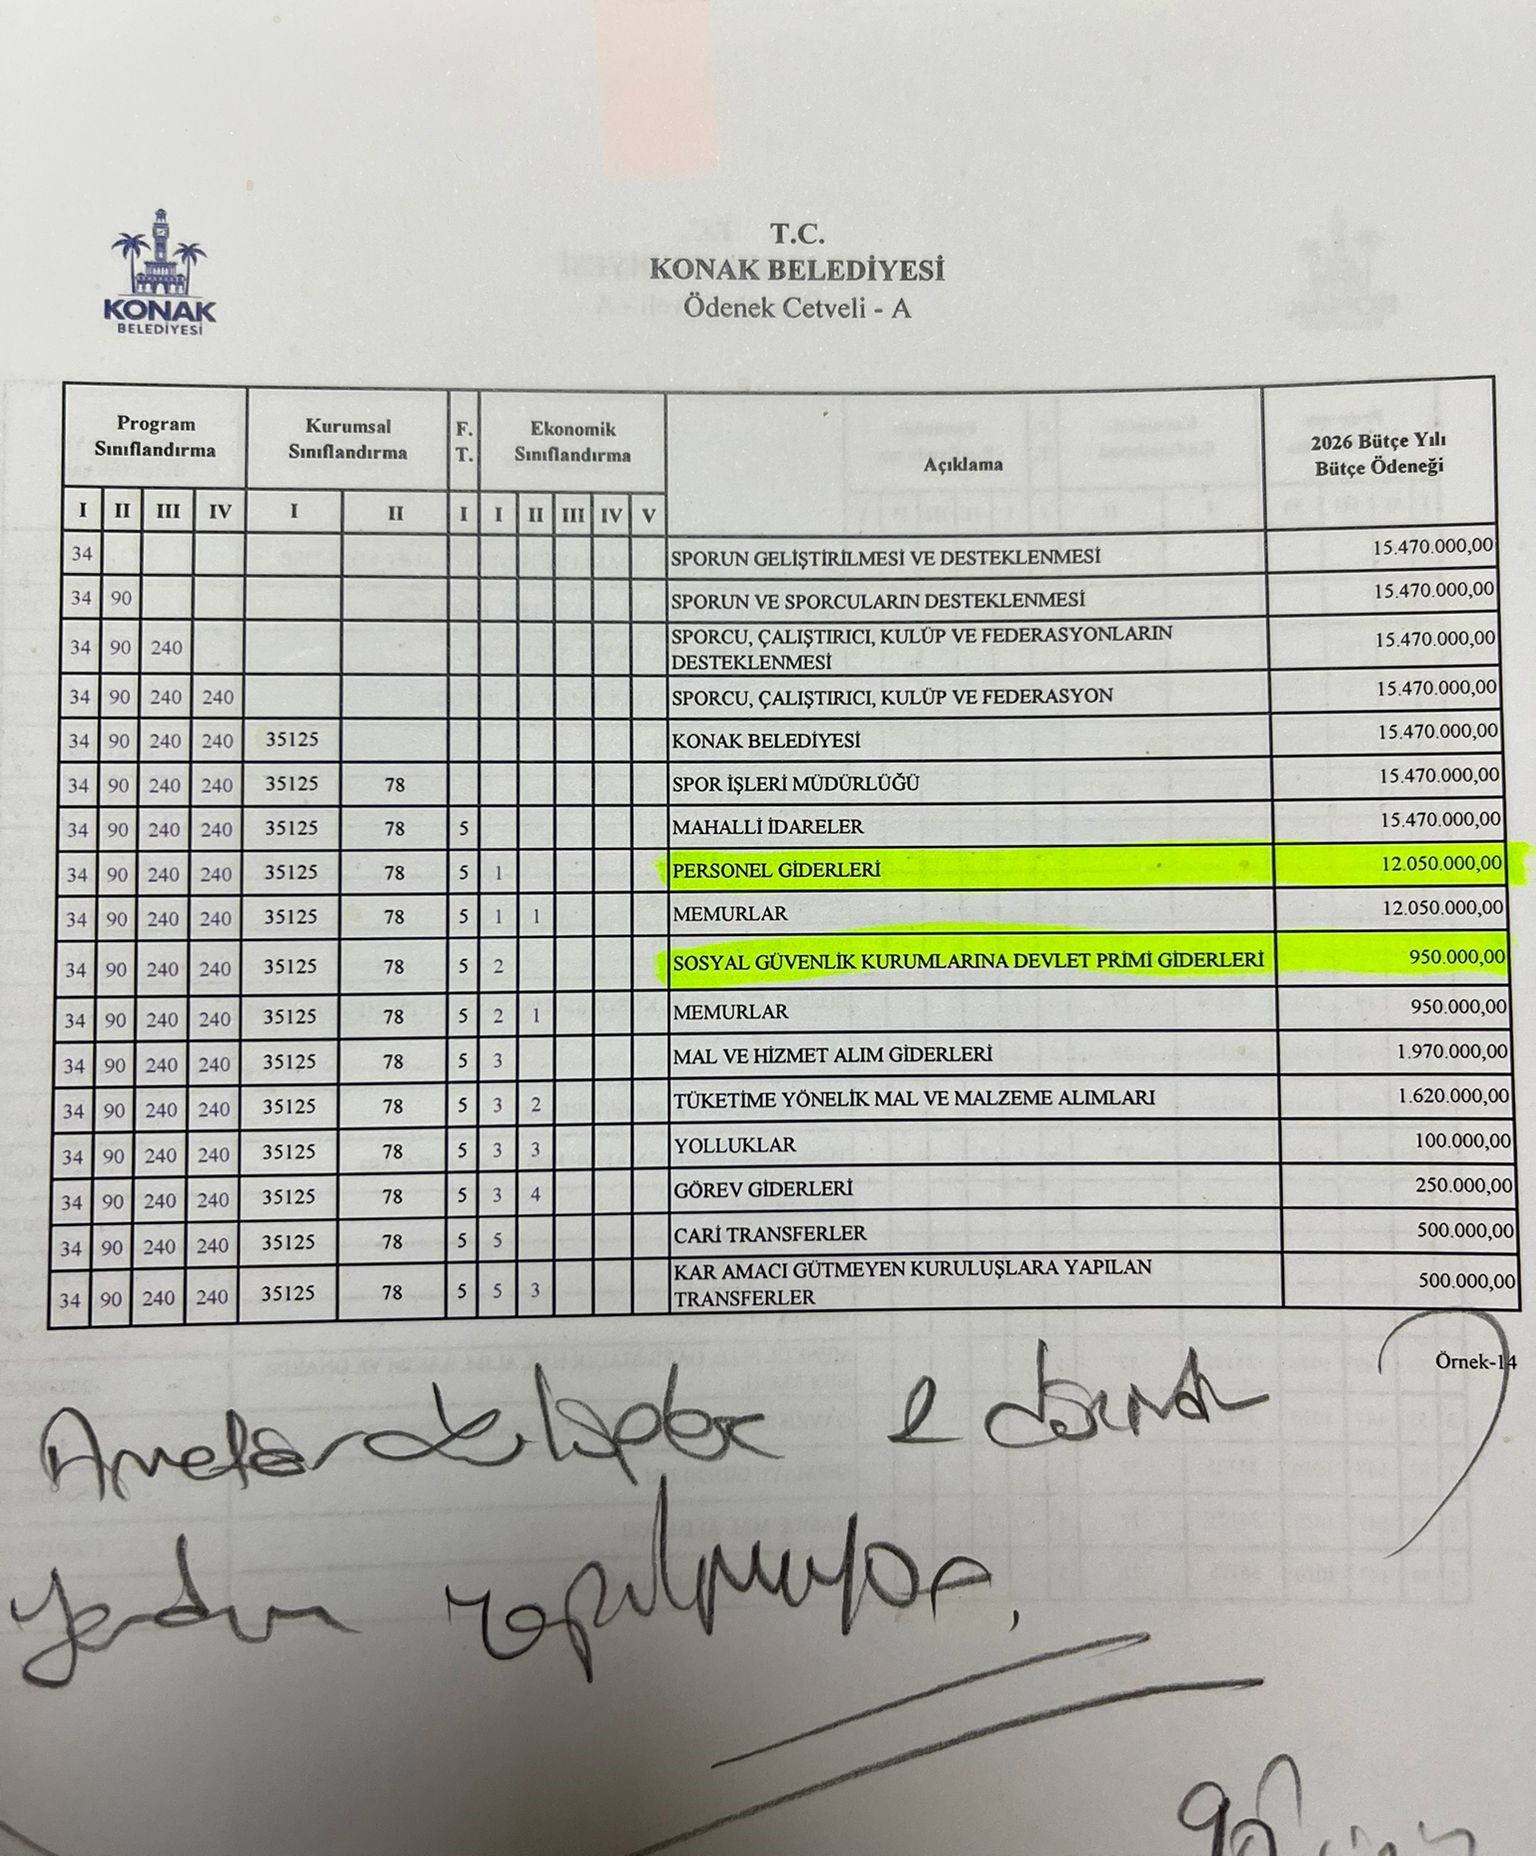 KONAK
BELEDİYESİ
T.C.
KONAK BELEDİYESİ
Ödenek Cetveli - A
Program Sınıflandırma Kurumsal Sınıflandırma F. T. Ekonomik Sınıflandırma Açıklama 2026 Bütçe Yılı Bütçe Ödeneği
I II III IV I II I I II III IV V
34 SPORUN GELİŞTİRİLMESİ VE DESTEKLENMESİ 15.470.000,00
34 90 SPORUN VE SPORCULARIN DESTEKLENMESİ 15.470.000,00
34 90 240 SPORCU, ÇALIŞTIRICI, KULÜP VE FEDERASYONLARIN DESTEKLENMESİ 15.470.000,00
34 90 240 240 SPORCU, ÇALIŞTIRICI, KULÜP VE FEDERASYON 15.470.000,00
34 90 240 240 35125 KONAK BELEDİYESİ 15.470.000,00
34 90 240 240 35125 78 SPOR İŞLERİ MÜDÜRLÜĞÜ 15.470.000,00
34 90 240 240 35125 78 5 MAHALLİ İDARELER 15.470.000,00
34 90 240 240 35125 78 5 1 PERSONEL GİDERLERİ 12.050.000,00
34 90 240 240 35125 78 5 1 1 MEMURLAR 12.050.000,00
34 90 240 240 35125 78 5 2 SOSYAL GÜVENLİK KURUMLARINA DEVLET PRİMİ GİDERLERİ 950.000,00
34 90 240 240 35125 78 5 2 1 MEMURLAR 950.000,00
34 90 240 240 35125 78 5 3 MAL VE HİZMET ALIM GİDERLERİ 1.970.000,00
34 90 240 240 35125 78 5 3 2 TÜKETİME YÖNELİK MAL VE MALZEME ALIMLARI 1.620.000,00
34 90 240 240 35125 78 5 3 3 YOLLUKLAR 100.000,00
34 90 240 240 35125 78 5 3 4 GÖREV GİDERLERİ 250.000,00
34 90 240 240 35125 78 5 5 CARİ TRANSFERLER 500.000,00
34 90 240 240 35125 78 5 5 3 KAR AMACI GÜTMEYEN KURULUŞLARA YAPILAN TRANSFERLER 500.000,00
Örnek-14
Amatör
yardım yapılmıyor.